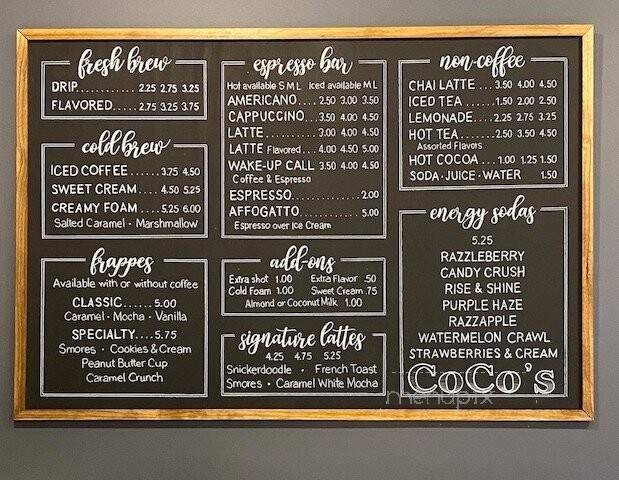 fresh brew
DRIP.......... 2.25 2.75 3.25
FLAVORED.... 2.75 3.25 3.75
cold brew
ICED COFFEE...... 3.75 4.50
SWEET CREAM.... 4.50 5.25
CREAMY FOAM.... 5.25 6.00
Salted Caramel · Marshmallow
frappes
Available with or without coffee
CLASSIC...... 5.00
Caramel · Mocha · Vanilla
SPECIALTY.... 5.75
Smores · Cookies & Cream
Peanut Butter Cup
Caramel Crunch
espresso bar
Hot available S M L Iced available M L
AMERICANO.... 2.50 3.00 3.50
CAPPUCCINO... 3.50 4.00 4.50
LATTE.......... 3.00 4.00 4.50
LATTE Flavored.... 4.00 4.50 5.00
WAKE-UP CALL 3.50 4.00 4.50
Coffee & Espresso
ESPRESSO............ 2.00
AFFOGATTO........... 5.00
Espresso over Ice Cream
add-ons
Extra shot 1.00 Extra Flavor .50
Cold Foam 1.00 Sweet Cream .75
Almond or Coconut Milk 1.00
signature lattes
4.25 4.75 5.25
Snickerdoodle · French Toast
Smores · Caramel White Mocha
non-coffee
CHAI LATTE... 3.50 4.00 4.50
ICED TEA...... 1.50 2.00 2.50
LEMONADE..... 2.25 2.75 3.25
HOT TEA....... 2.50 3.50 4.50
Assorted Flavors
HOT COCOA... 1.00 1.25 1.50
SODA · JUICE · WATER 1.50
energy sodas
5.25
RAZZLEBERRY
CANDY CRUSH
RISE & SHINE
PURPLE HAZE
RAZZAPPLE
WATERMELON CRAWL
STRAWBERRIES & CREAM
COCO'S
menupix